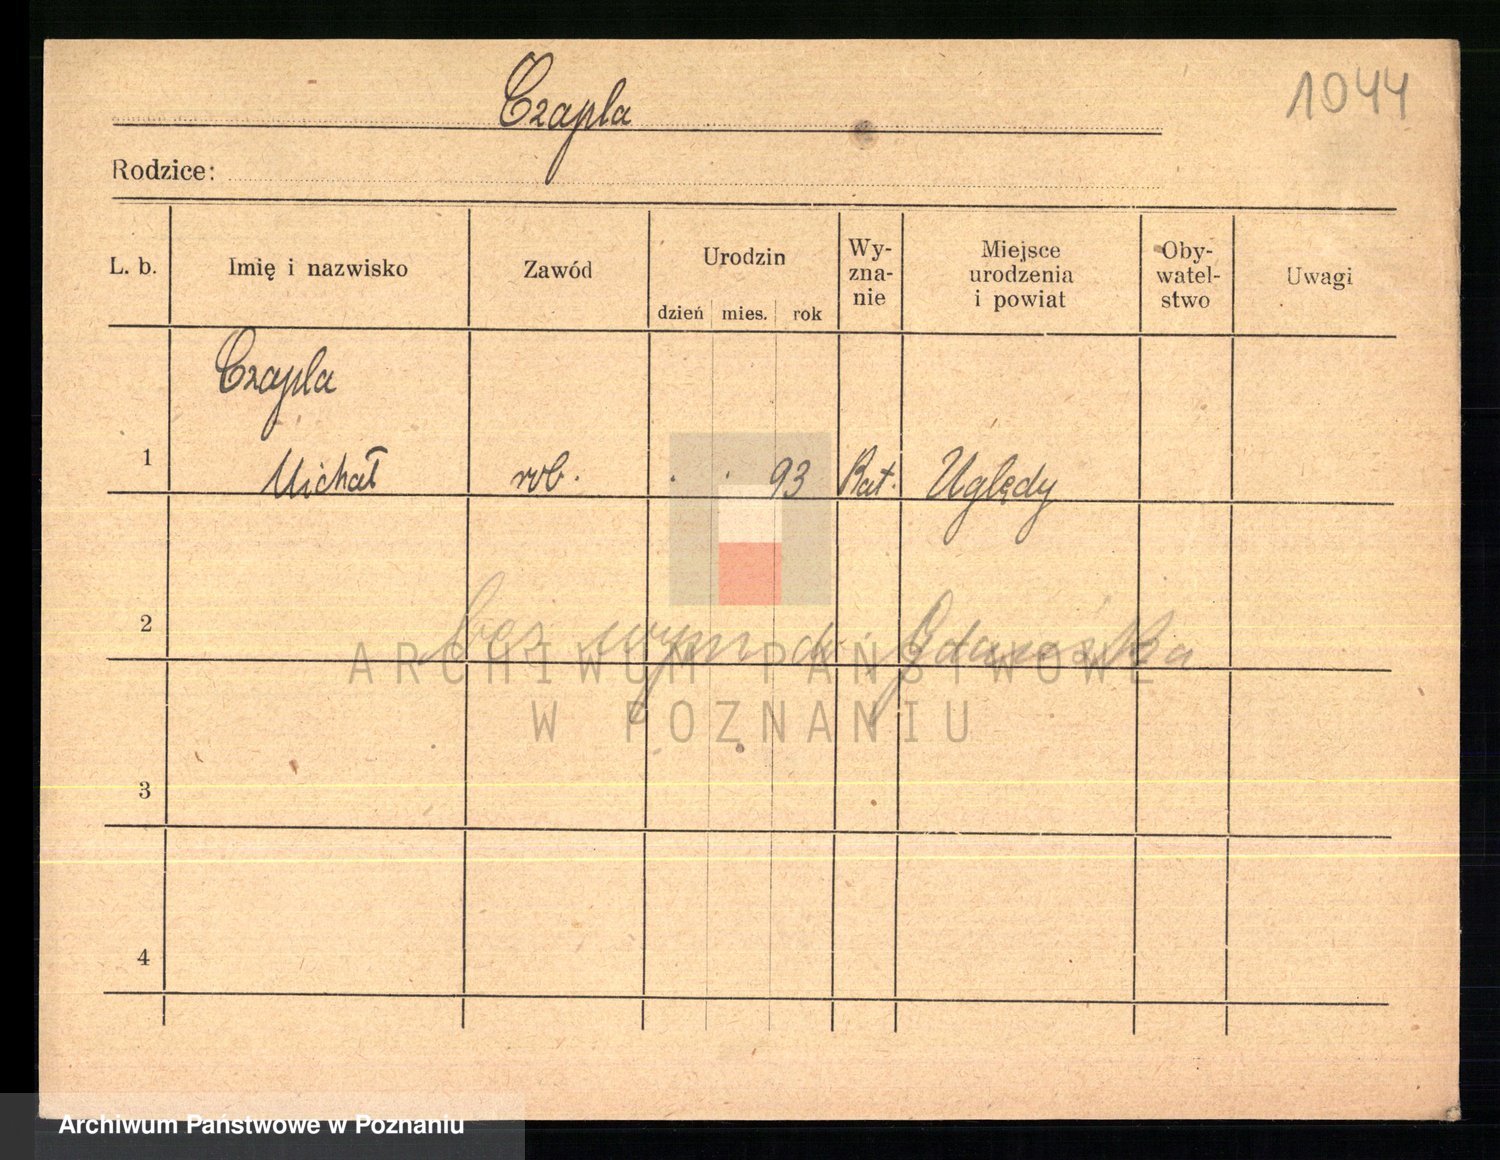 1044
Czapla
Rodzice:
L. b. Imię i nazwisko Zawód Urodzin dzień mies. rok Wy-zna-nie Miejsce urodzenia i powiat Oby-watel-stwo Uwagi
Czapla
1 Michał rob. . . 93 Kat. Uględy
2 bez wym do Gdańska
3
4
ARCHIWUM PAŃSTWOWE
W POZNANIU
Archiwum Państwowe w Poznaniu